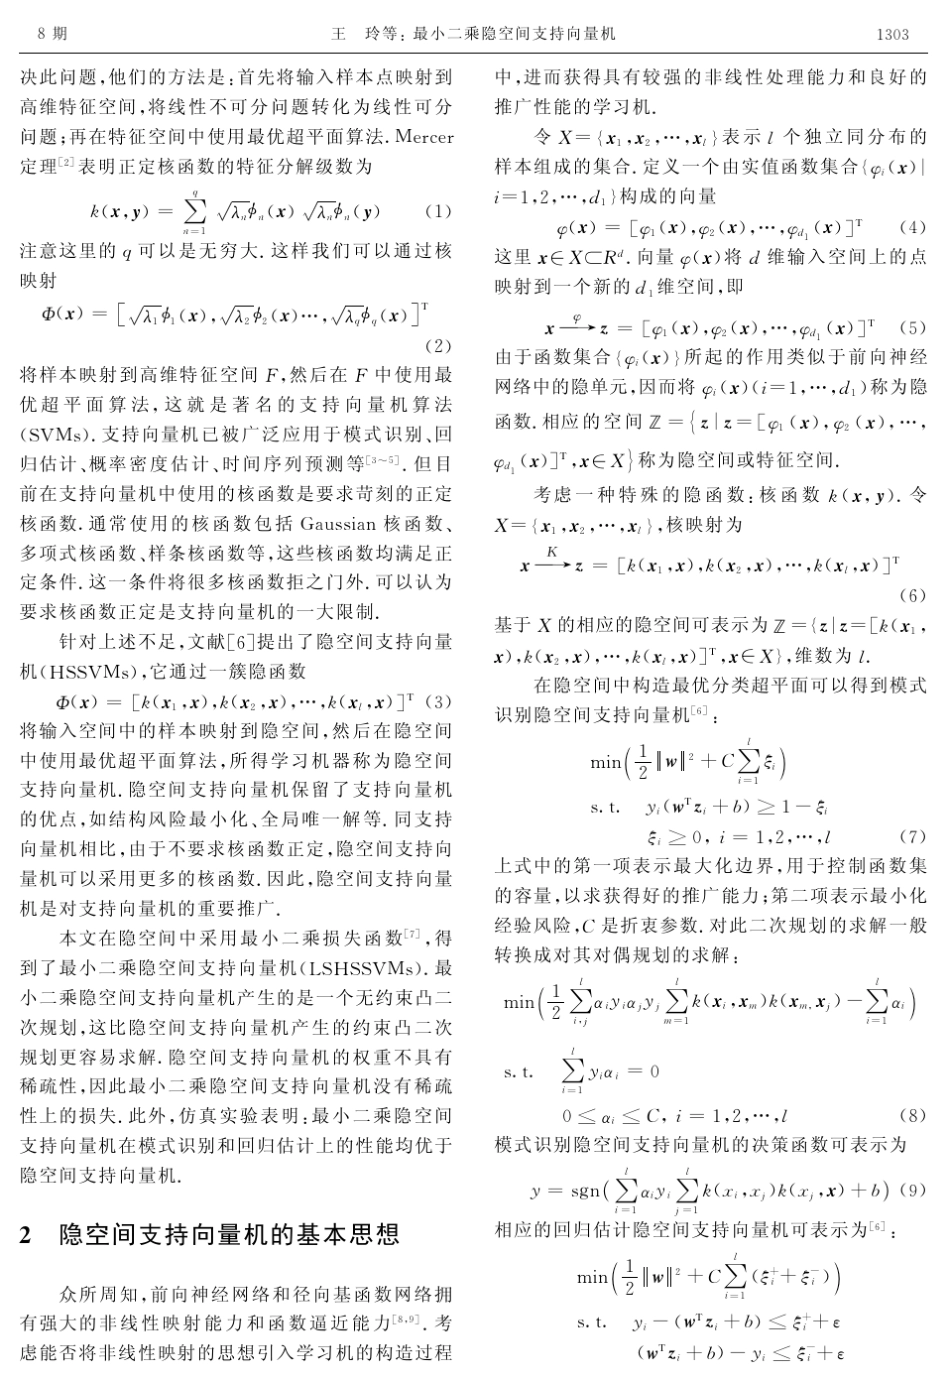 8 期
王 玲等：最小二乘隐空间支持向量机
1303
决此问题，他们的方法是：首先将输入样本点映射到
高维特征空间，将线性不可分问题转化为线性可分
问题；再在特征空间中使用最优超平面算法. Mercer
定理[2]表明正定核函数的特征分解级数为
k(x,y) = ∑_{n=1}^{q} √λₙϕₙ(x) √λₙϕₙ(y) (1)
注意这里的 q 可以是无穷大. 这样我们可以通过核
映射
Φ(x) = [√λ₁ϕ₁(x),√λ₂ϕ₂(x)…,√λ_qϕ_q(x)]ᵀ
(2)
将样本映射到高维特征空间 F，然后在 F 中使用最
优超平面算法，这就是著名的支持向量机算法
(SVMs). 支持向量机已被广泛应用于模式识别、回
归估计、概率密度估计、时间序列预测等[3~5]. 但目
前在支持向量机中使用的核函数是要求苛刻的正定
核函数. 通常使用的核函数包括 Gaussian 核函数、
多项式核函数、样条核函数等，这些核函数均满足正
定条件. 这一条件将很多核函数拒之门外. 可以认为
要求核函数正定是支持向量机的一大限制.
针对上述不足，文献[6]提出了隐空间支持向量
机(HSSVMs)，它通过一簇隐函数
Φ(x) = [k(x₁,x),k(x₂,x),…,k(x_l,x)]ᵀ (3)
将输入空间中的样本映射到隐空间，然后在隐空间
中使用最优超平面算法，所得学习机器称为隐空间
支持向量机. 隐空间支持向量机保留了支持向量机
的优点，如结构风险最小化、全局唯一解等. 同支持
向量机相比，由于不要求核函数正定，隐空间支持向
量机可以采用更多的核函数. 因此，隐空间支持向量
机是对支持向量机的重要推广.
本文在隐空间中采用最小二乘损失函数[7]，得
到了最小二乘隐空间支持向量机(LSHSSVMs). 最
小二乘隐空间支持向量机产生的是一个无约束凸二
次规划，这比隐空间支持向量机产生的约束凸二次
规划更容易求解. 隐空间支持向量机的权重不具有
稀疏性，因此最小二乘隐空间支持向量机没有稀疏
性上的损失. 此外，仿真实验表明：最小二乘隐空间
支持向量机在模式识别和回归估计上的性能均优于
隐空间支持向量机.
2 隐空间支持向量机的基本思想
众所周知，前向神经网络和径向基函数网络拥
有强大的非线性映射能力和函数逼近能力[8,9]. 考
虑能否将非线性映射的思想引入学习机的构造过程
中，进而获得具有较强的非线性处理能力和良好的
推广性能的学习机.
令 X={x₁,x₂,…,x_l}表示 l 个独立同分布的
样本组成的集合. 定义一个由实值函数集合{φᵢ(x)|
i=1,2,…,d₁}构成的向量
φ(x) = [φ₁(x),φ₂(x),…,φ_{d₁}(x)]ᵀ (4)
这里 x∈X⊂Rᵈ. 向量 φ(x)将 d 维输入空间上的点
映射到一个新的 d₁维空间，即
x —φ→ z = [φ₁(x),φ₂(x),…,φ_{d₁}(x)]ᵀ (5)
由于函数集合{φᵢ(x)}所起的作用类似于前向神经
网络中的隐单元，因而将 φᵢ(x)(i=1,…,d₁)称为隐
函数. 相应的空间 ℤ={z|z=[φ₁(x),φ₂(x),…,
φ_{d₁}(x)]ᵀ,x∈X}称为隐空间或特征空间.
考虑一种特殊的隐函数：核函数 k(x,y). 令
X={x₁,x₂,…,x_l}，核映射为
x —K→ z = [k(x₁,x),k(x₂,x),…,k(x_l,x)]ᵀ
(6)
基于 X 的相应的隐空间可表示为 ℤ={z|z=[k(x₁,
x),k(x₂,x),…,k(x_l,x)]ᵀ,x∈X}，维数为 l.
在隐空间中构造最优分类超平面可以得到模式
识别隐空间支持向量机[6]：
min(1/2‖w‖² + C∑_{i=1}^{l} ξᵢ)
s. t. yᵢ(wᵀzᵢ + b) ≥ 1 − ξᵢ
ξᵢ ≥ 0, i = 1,2,…,l (7)
上式中的第一项表示最大化边界，用于控制函数集
的容量，以求获得好的推广能力；第二项表示最小化
经验风险，C 是折衷参数. 对此二次规划的求解一般
转换成对其对偶规划的求解：
min(1/2 ∑_{i,j}^{l} αᵢyᵢαⱼyⱼ ∑_{m=1}^{l} k(xᵢ,xₘ)k(xₘ,xⱼ) − ∑_{i=1}^{l} αᵢ)
s. t. ∑_{i=1}^{l} yᵢαᵢ = 0
0 ≤ αᵢ ≤ C, i = 1,2,…,l (8)
模式识别隐空间支持向量机的决策函数可表示为
y = sgn(∑_{i=1}^{l} αᵢyᵢ ∑_{j=1}^{l} k(xᵢ,xⱼ)k(xⱼ,x) + b) (9)
相应的回归估计隐空间支持向量机可表示为[6]：
min(1/2‖w‖² + C∑_{i=1}^{l} (ξᵢ⁺ + ξᵢ⁻))
s. t. yᵢ − (wᵀzᵢ + b) ≤ ξᵢ⁺ + ε
(wᵀzᵢ + b) − yᵢ ≤ ξᵢ⁻ + ε